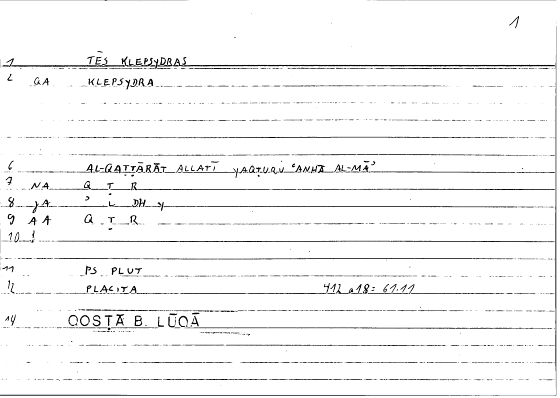 1
1 TĒS KLEPSYDRAS
2 GA KLEPSYDRA
6 AL-QAṬṬĀRĀT ALLATĪ YAQṬURU ʿANHĀ AL-MĀʾ
7 NA Q Ṭ R
8 JA ʾ L DH Y
9 AA Q Ṭ R
10 !
11 PS PLUT
12 PLACITA 412 a18 = 61.11
14 QOSṬĀ B. LŪQĀ